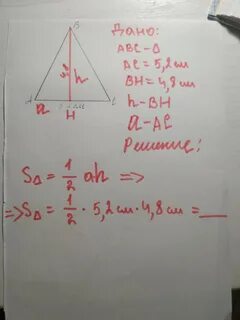 B
Дано:
ABC - Δ
AC = 5,2 см
BH = 4,8 см
h - BH
a - AC
Решение:
h
A
C
a
H
S△ = 1/2 ah =>
=> S△ = 1/2 · 5,2 см · 4,8 см = ___